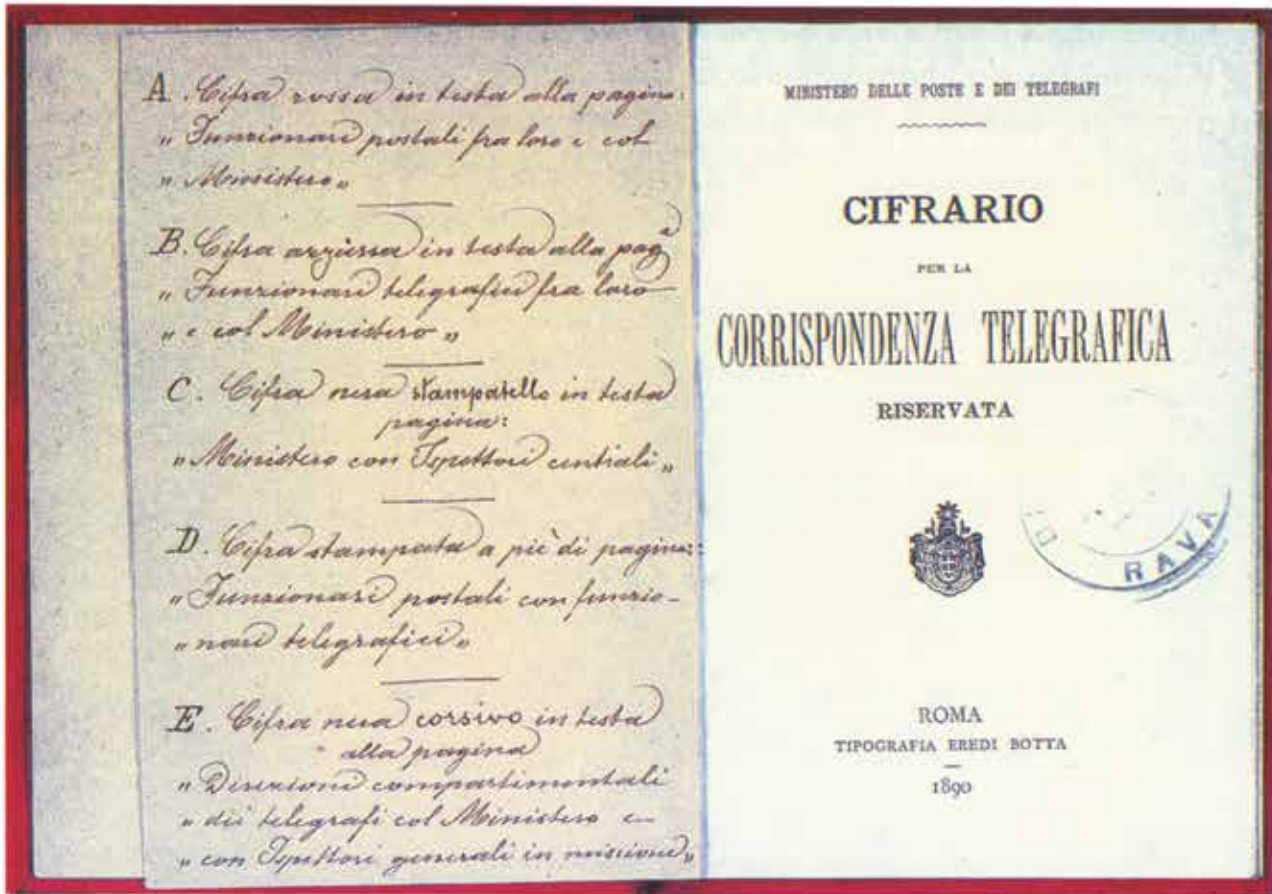 A. Cifra rossa in testa alla pagina:
„ Funzionari postali fra loro e col
„ Ministero „
B. Cifra azzurra in testa alla pagª
„ Funzionari telegrafici fra loro
„ e col Ministero „
C. Cifra nera stampatello in testa
pagina:
„ Ministero con Ispettori centrali „
D. Cifra stampata a piè di pagina:
„ Funzionari postali con funzio-
„ nari telegrafici „
E. Cifra nera corsivo in testa
alla pagina
„ Direzioni compartimentali
„ dei telegrafi col Ministero e
„ con Ispettori generali in missione „
MINISTERO DELLE POSTE E DEI TELEGRAFI
CIFRARIO
PER LA
CORRISPONDENZA TELEGRAFICA
RISERVATA
RAVA
ROMA
TIPOGRAFIA EREDI BOTTA
1890